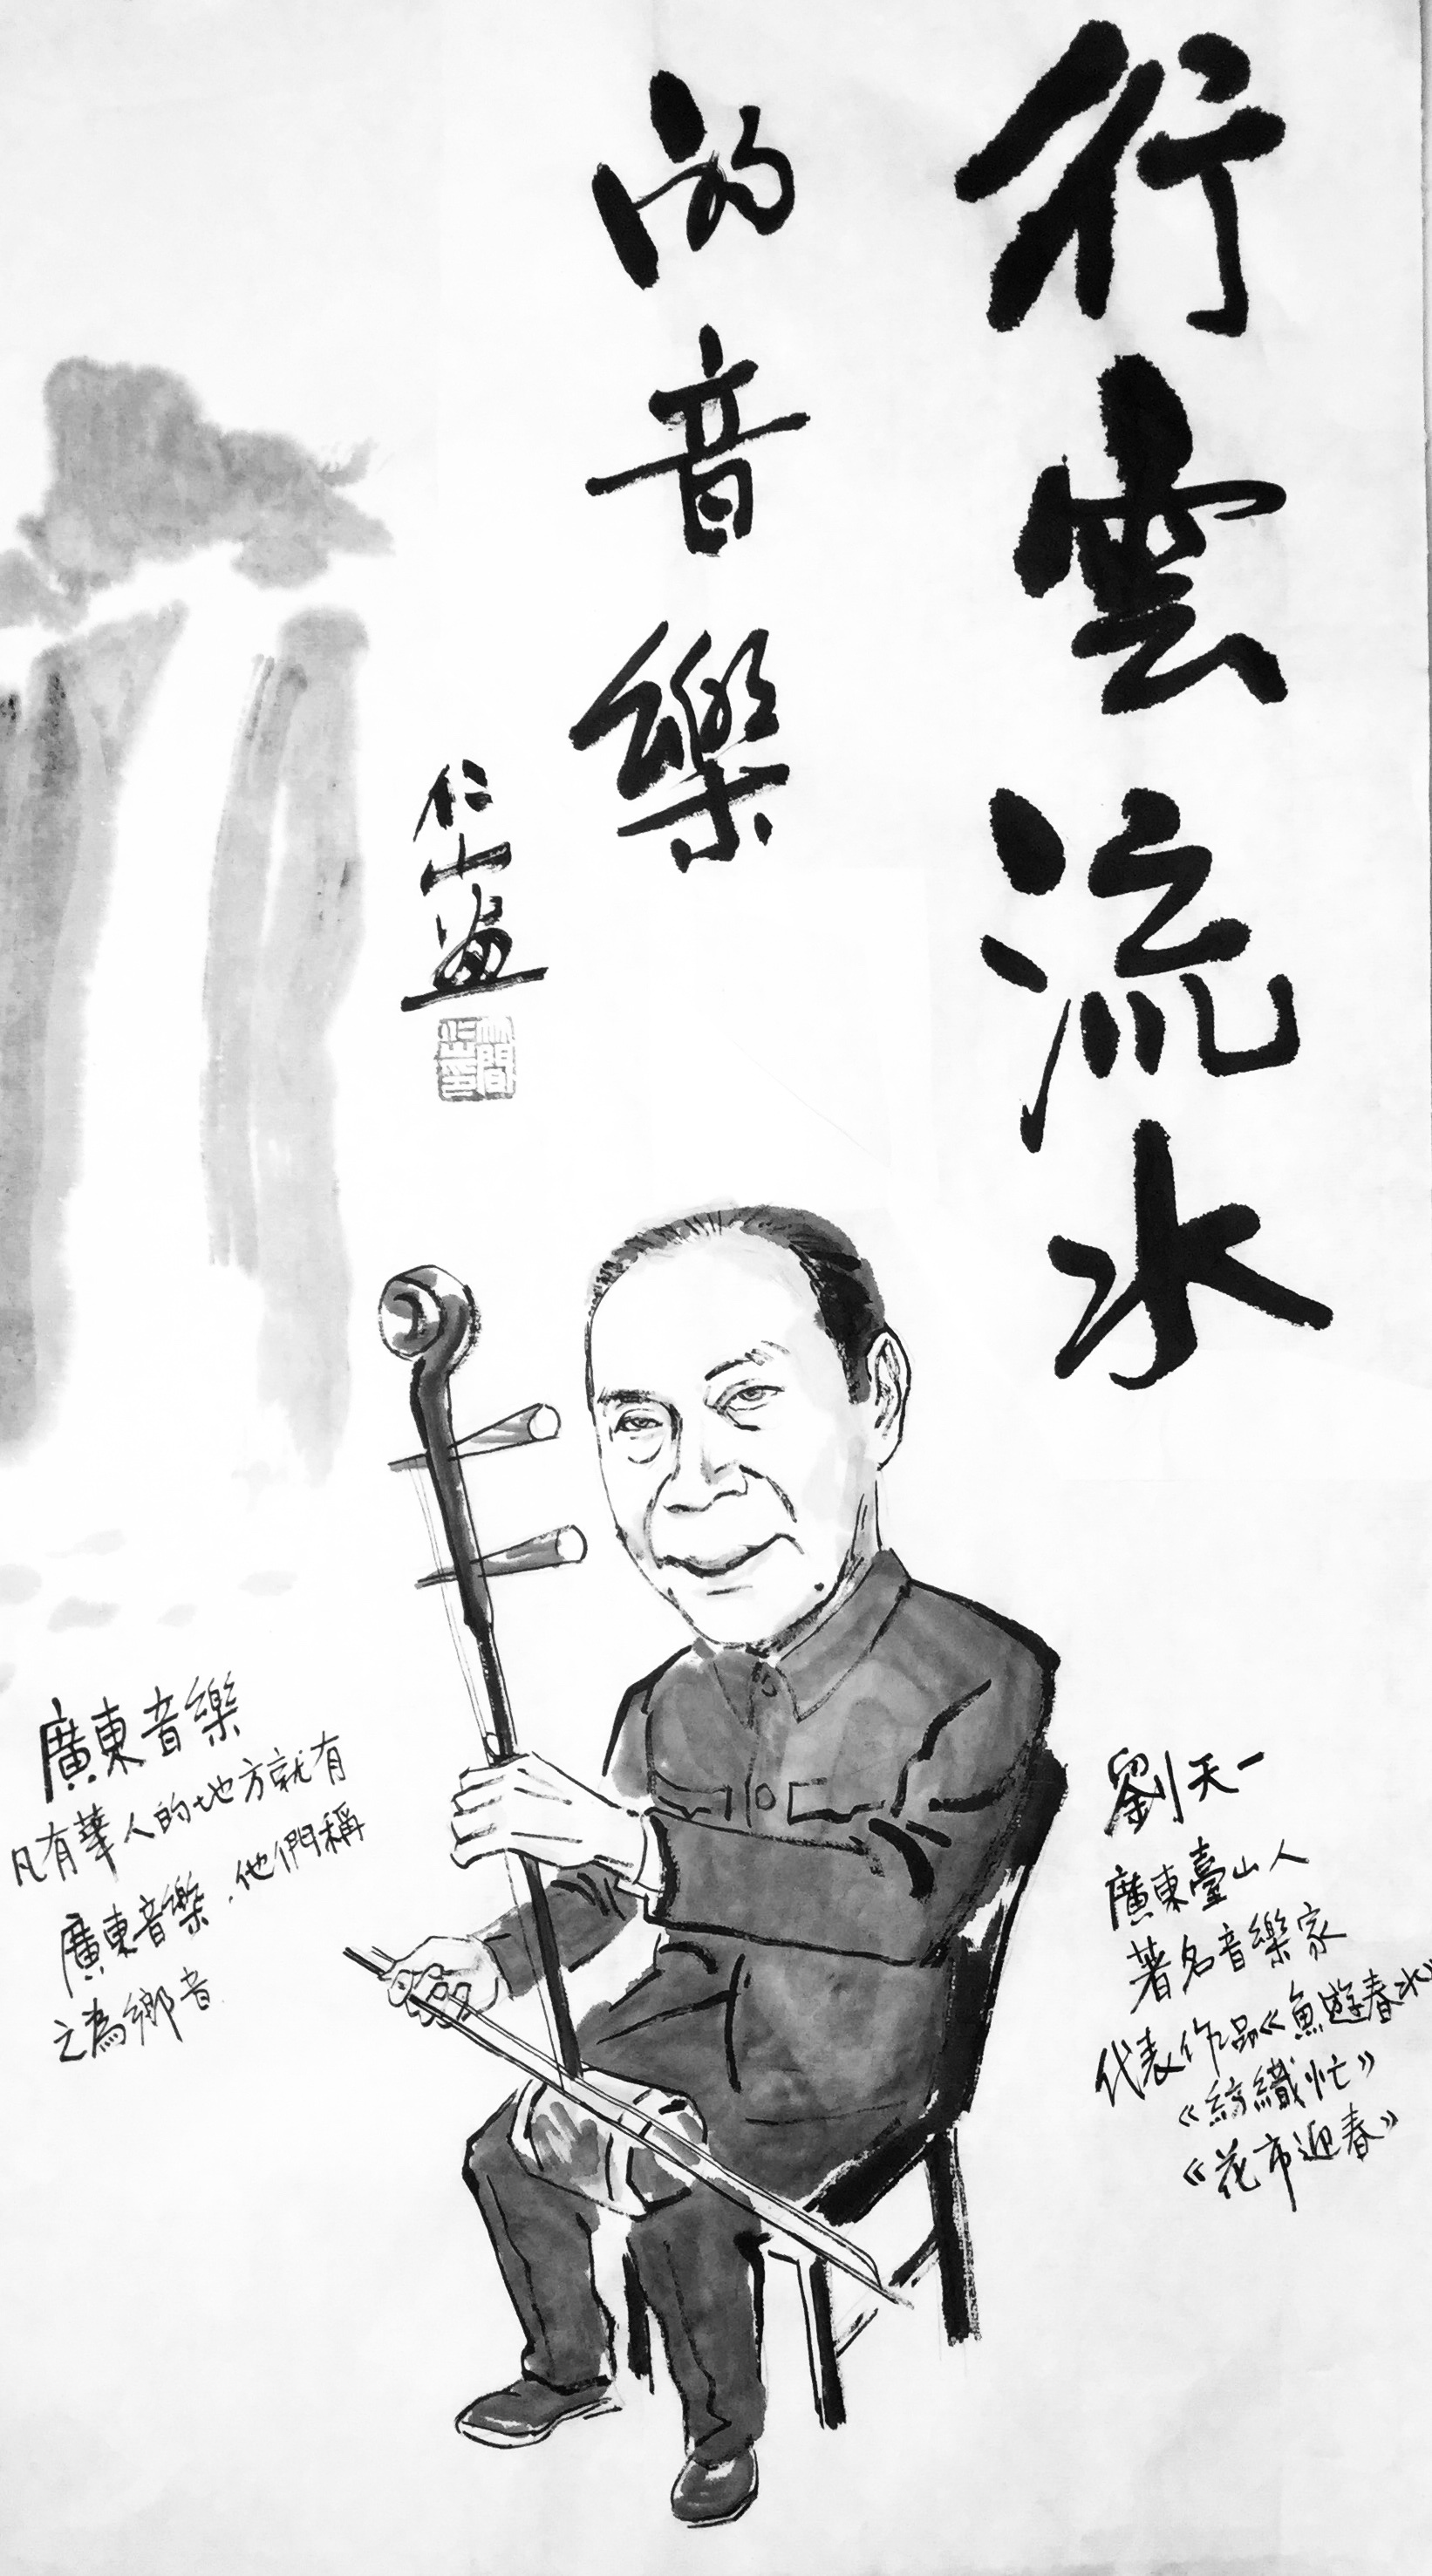 行雲流水
的音樂
仁山畫
廣東音樂
凡有華人的地方就有
廣東音樂．他們稱
之為鄉音
劉天一
廣東臺山人
著名音樂家
代表作品《魚遊春水》
《紡織忙》
《花市迎春》